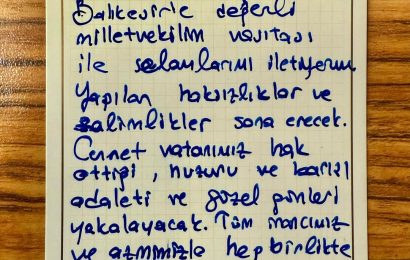 Balıkesir'e değerli
milletvekilim vasıtası
ile selamlarımı iletiyorum
Yapılan haksızlıklar ve
zalimlikler sona erecek.
Cennet vatanımız hak
ettiği, huzuru ve barışı
adaleti ve güzel günleri
yakalayacak. Tüm inancımız
ve azmimizle hepbirlikte